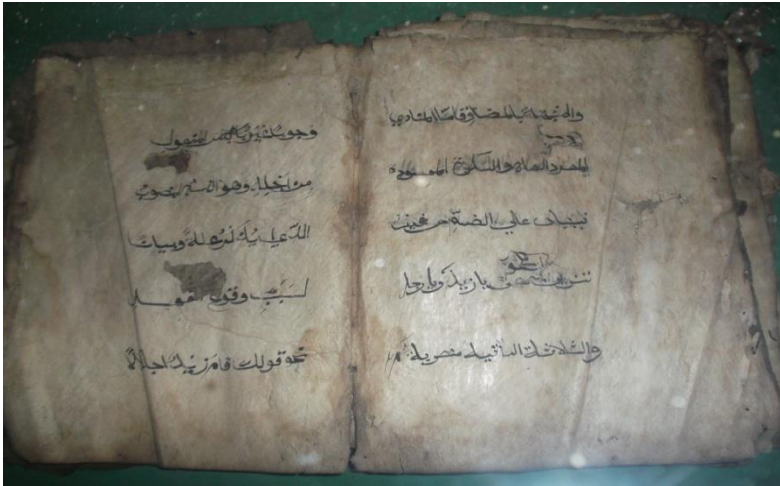 والمشبه بالمضاف فاما المنادي
المفرد العلم والنكرة المقصودة
فيبنيان علي الضمة من غير
تنوين نحو يازيد ويا رجل
والثلاثة الباقية منصوبة
من اجله وهو الاسم المنصوب
الذي يذكر علة وبيانا
لسبب وقوع الفعل
نحو قولك قام زيد اجلالا